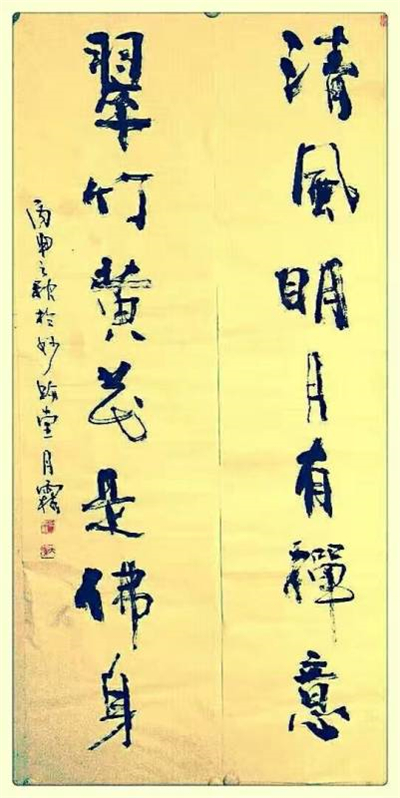 清風明月有禪意
翠竹黄花是佛身
丙申之秋於妙
堂月霖